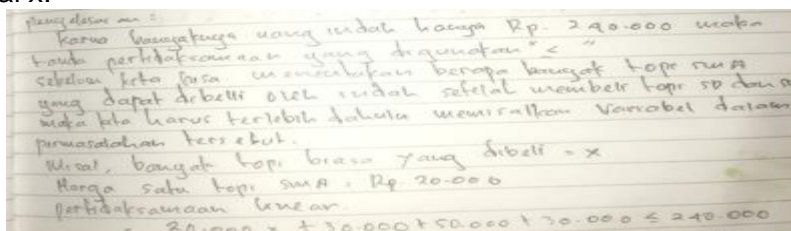 penyelesaian :
Karna banyaknya uang indah hanya Rp. 240.000 maka
tanda pertidaksamaan yang digunakan "≤"
sebelum kita bisa menentukan berapa banyak topi SMA
yang dapat dibeli oleh indah setelah membeli topi SD dan
maka kita harus terlebih dahulu memisalkan Variabel dalam
permasalahan tersebut.
Misal, banyak topi biasa yang dibeli = x
Harga satu topi SMA = Rp. 20.000
pertidaksamaan linear.
20.000 x + 30.000 + 50.000 + 30.000 ≤ 240.000